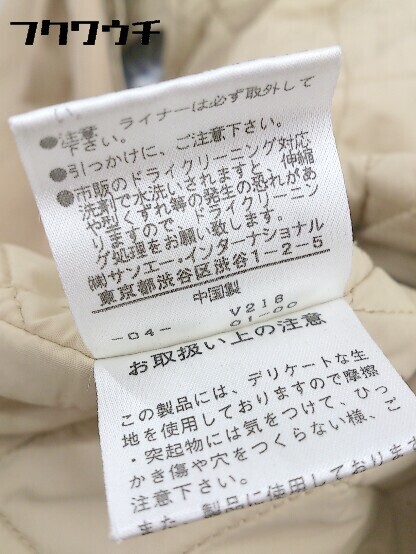 フクワウチ
い。
●注意 ライナーは必ず取外して
下さい。
●引つかけに、ご注意下さい。
●市販のドライクリーニング対応
洗剤で水洗いされますと、伸縮
や型くずれ等の発生の恐れがあ
りますので、ドライクリーニン
グ処理をお願い致します。
㈱サンエー・インターナショナル
東京都渋谷区渋谷1-2-5
中国製
V218
-04- 01-00
お取扱い上の注意
この製品には、デリケートな生
地を使用しておりますので摩擦
・突起物には気をつけて、ひっ
かき傷や穴をつくらない様、ご
注意下さい。
また、製品に使用しておりま